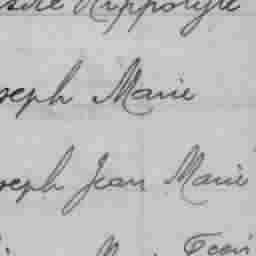 Hippolyte
oseph Marie
oseph Jean Marie